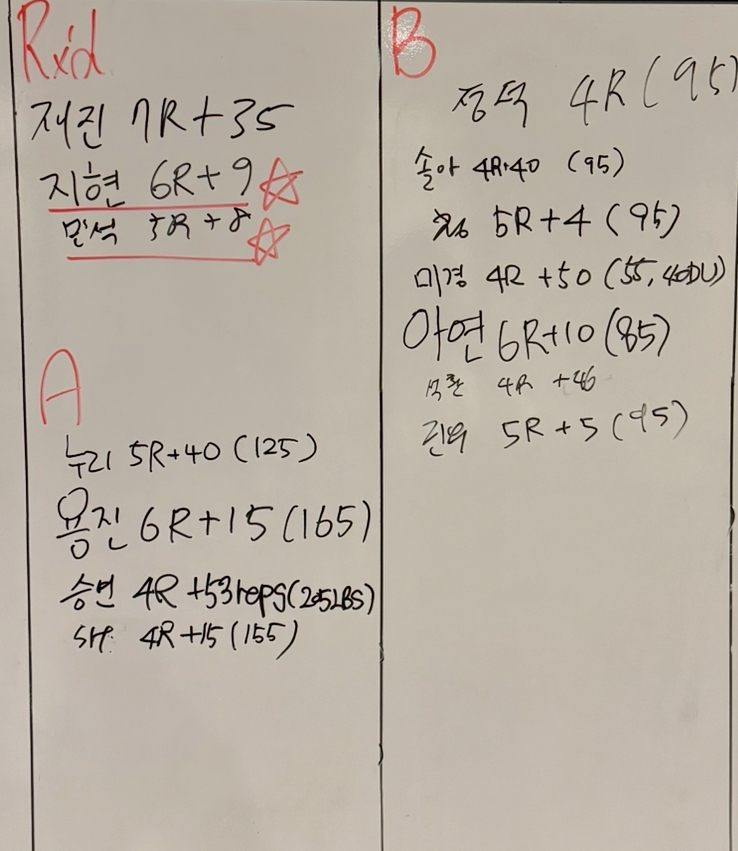 Rx'd
재진 7R+35
지현 6R+9
민석 5R+8
A
누리 5R+40 (125)
용진 6R+15 (165)
승변 4R+53reps(205LBS)
4R+15 (155)
B
정덕 4R (95)
솔아 4R+40 (95)
5R+4 (95)
미경 4R+50 (55, 40DU)
아연 6R+10 (85)
4R +46
5R+5 (95)